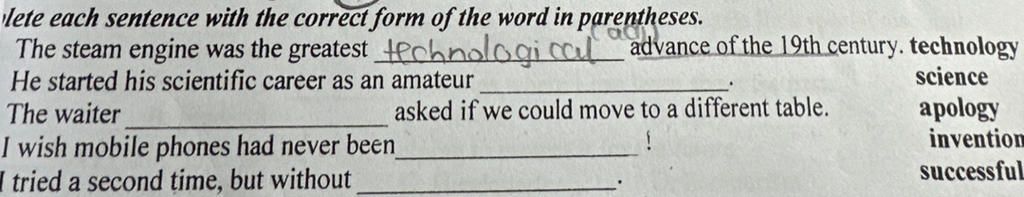 lete each sentence with the correct form of the word in parentheses.
(adj)
The steam engine was the greatest technological advance of the 19th century. technology
He started his scientific career as an amateur ____________. science
The waiter ____________ asked if we could move to a different table. apology
I wish mobile phones had never been____________! invention
I tried a second time, but without ____________. successful